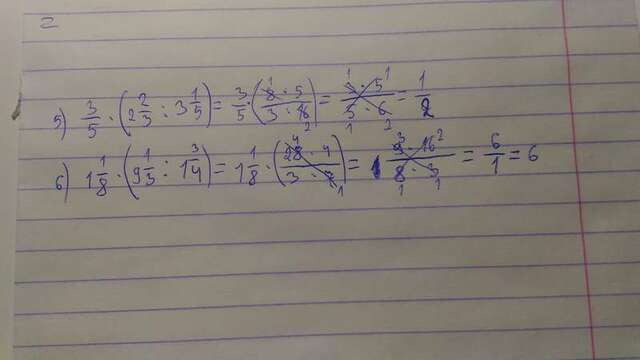 2
5) 3/5 · (2 2/3 : 3 1/5) = 3/5 · (8 · 5 / 3 · 16) = 3 · 5 / 5 · 6 = 1/2
6) 1 1/8 · (9 1/3 : 1 3/4) = 1 1/8 · (28 · 4 / 3 · 7) = 9 · 16 / 8 · 3 = 6/1 = 6